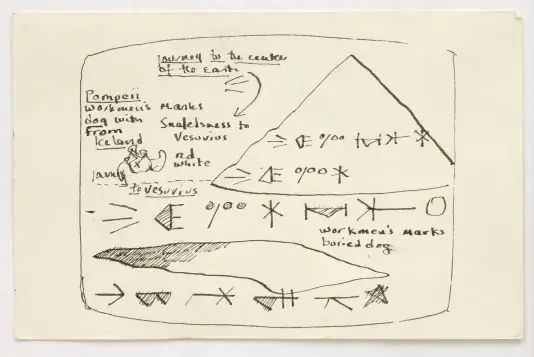 Journey to the center
of the Earth
Pompeii
workmen's Marks
dog with
from
Iceland
Snefelsness to
Vesuvius
red
white
to vesuvius
workmen's marks
buried dog